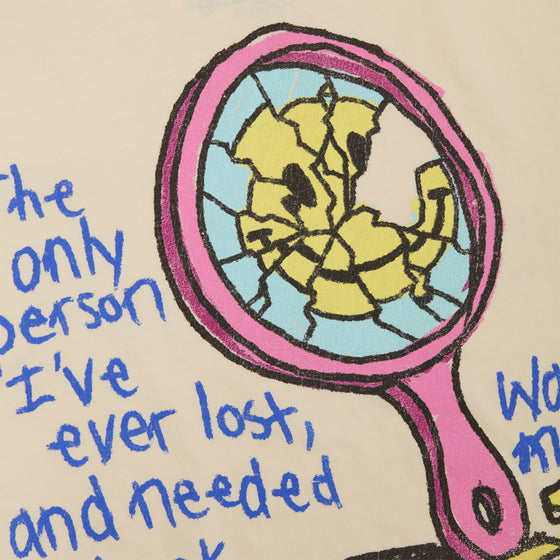 The
only
person
I've
ever lost,
and needed